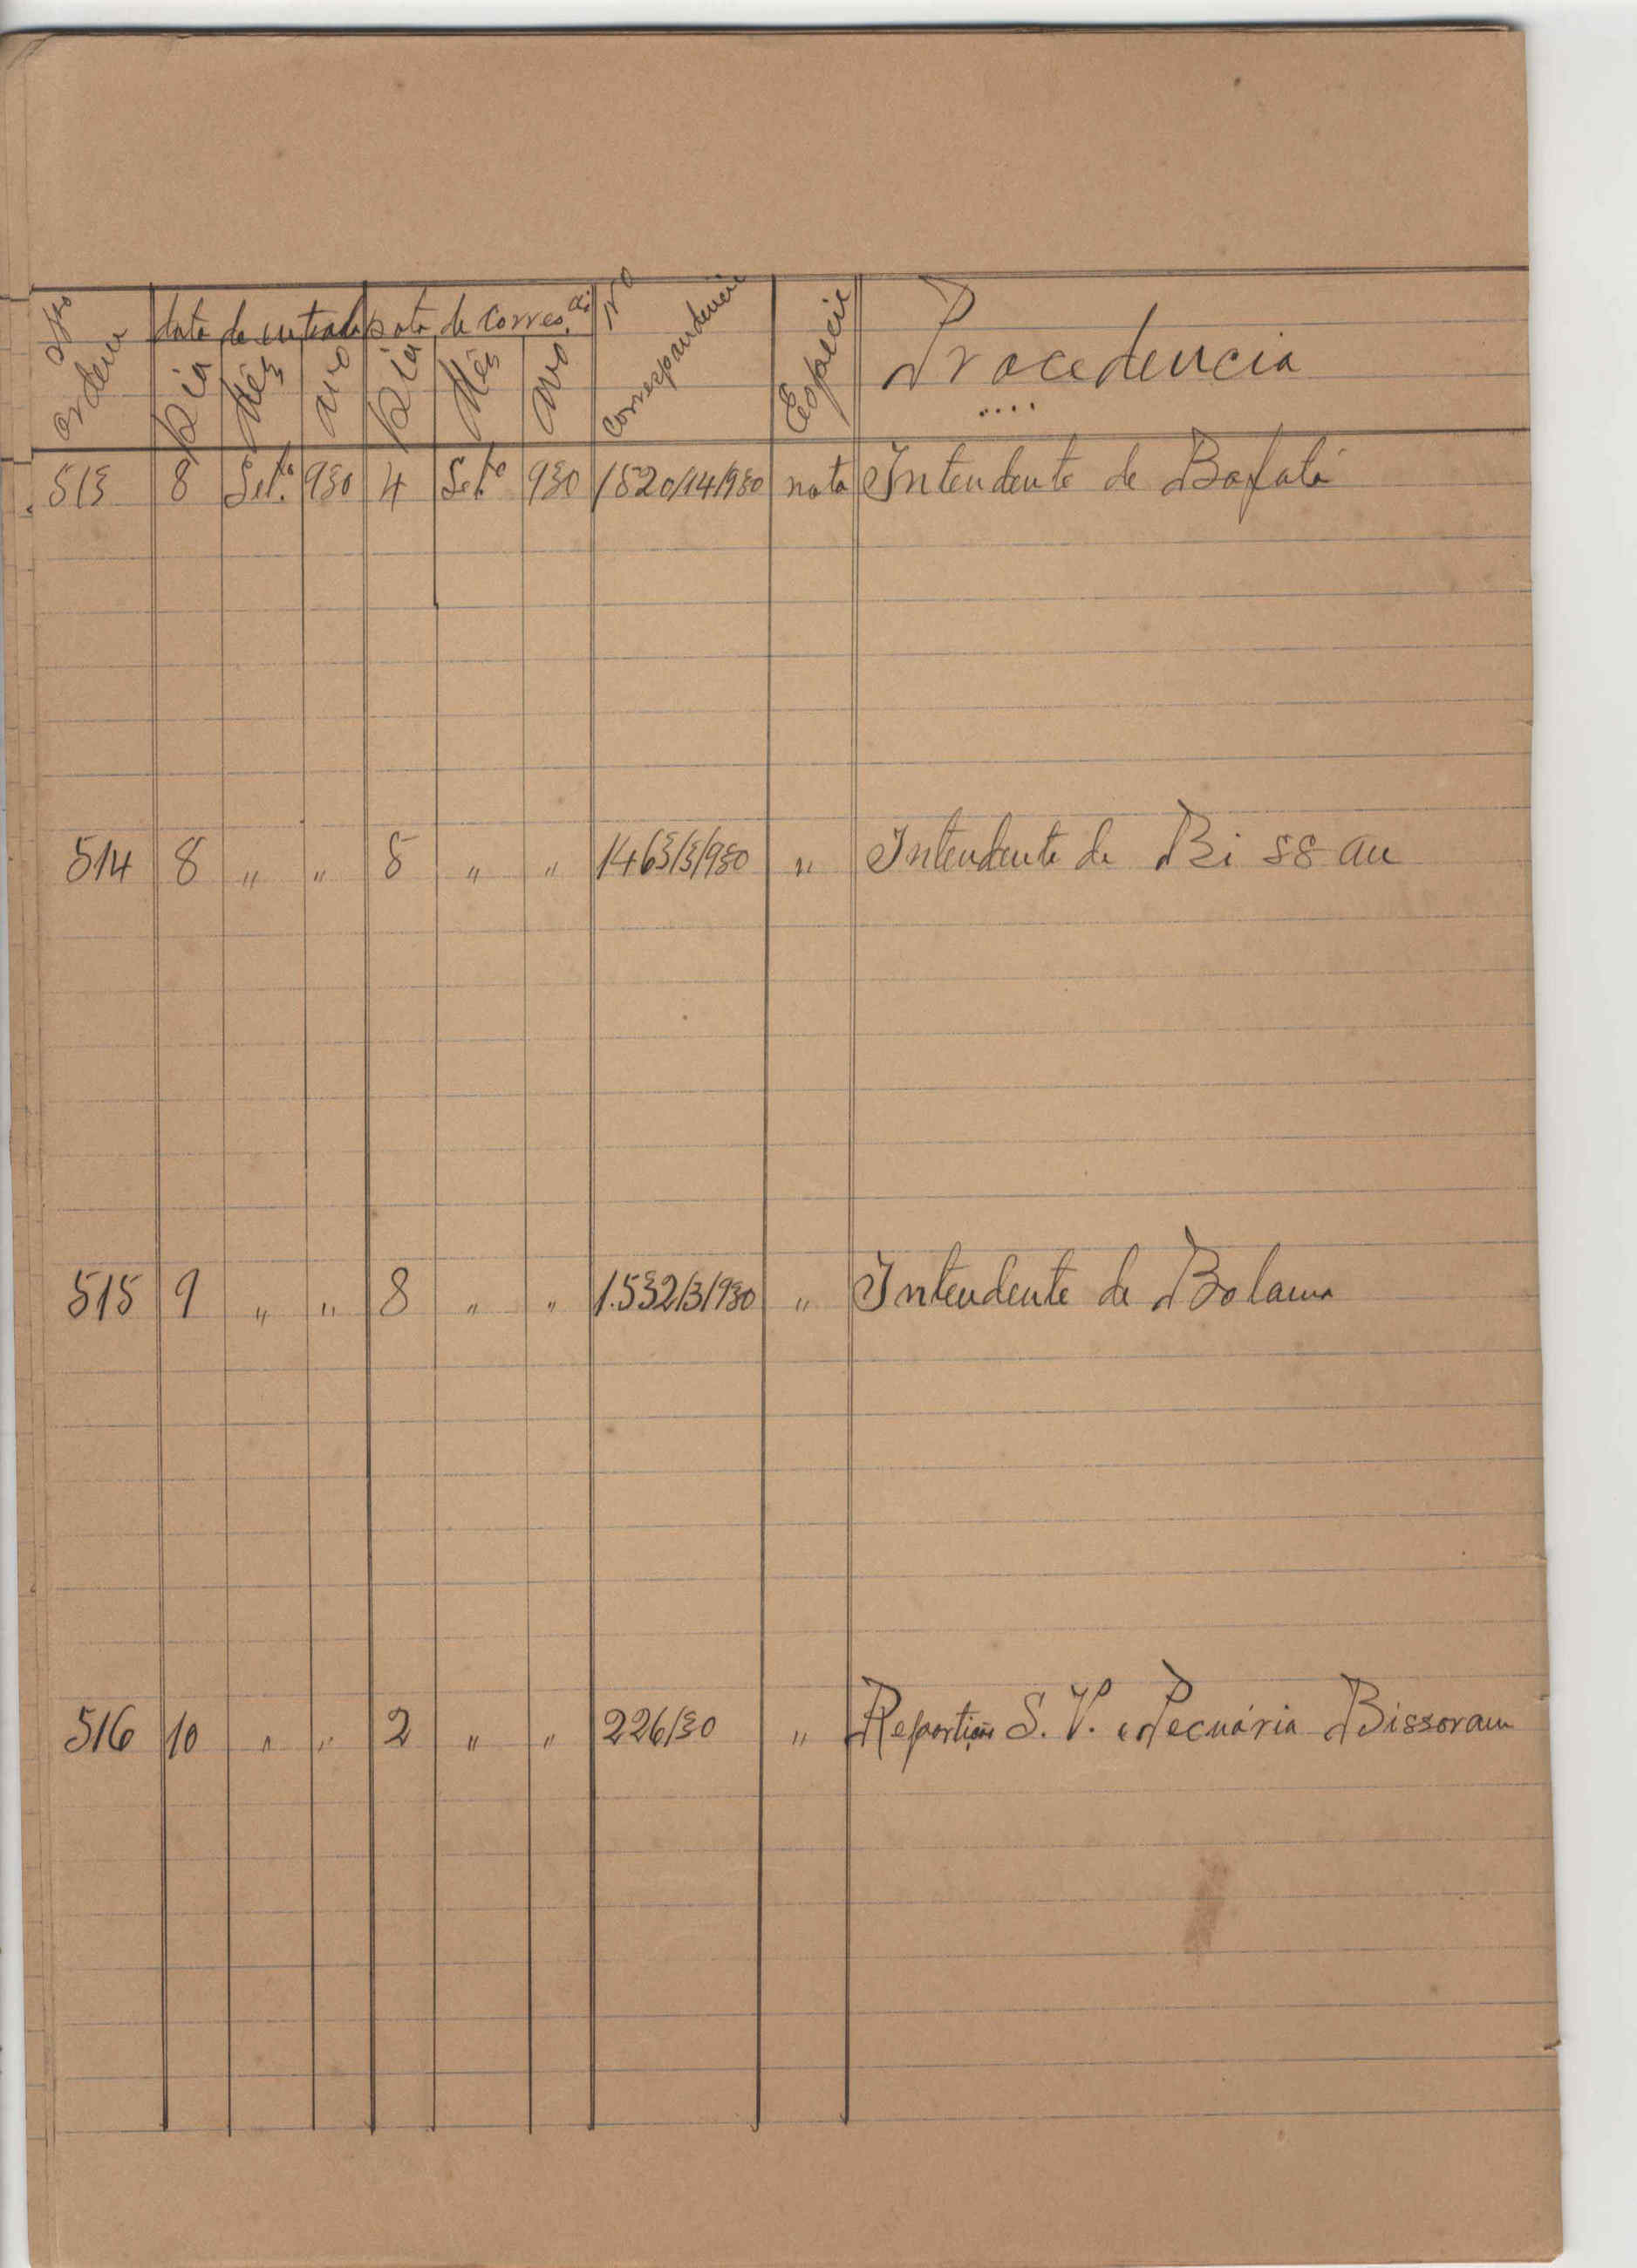 Nº ordem | data de entrada | Data de corres.cia | Nº correspondencia | Especie | Procedencia
Dia | Mês | ano | Dia | Mês | ano
513 | 8 | Set.º | 930 | 4 | Set.º | 930 | 1520/14/930 | nota | Intendente de Bafatá
514 | 8 | " | " | 5 | " | " | 1463/3/930 | " | Intendente de Bissau
515 | 9 | " | " | 8 | " | " | 1.532/3/930 | " | Intendente de Bolama
516 | 10 | " | " | 2 | " | " | 226/30 | " | S. V. Pecuária Bissoram